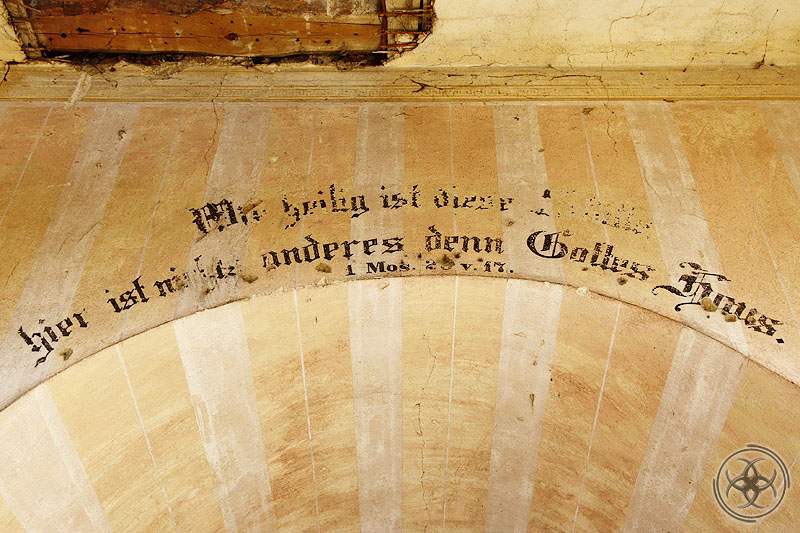 Wie heilig ist diese Stätte
hier ist nichts anderes denn Gottes Haus.
1 Mos. 28 v. 17.